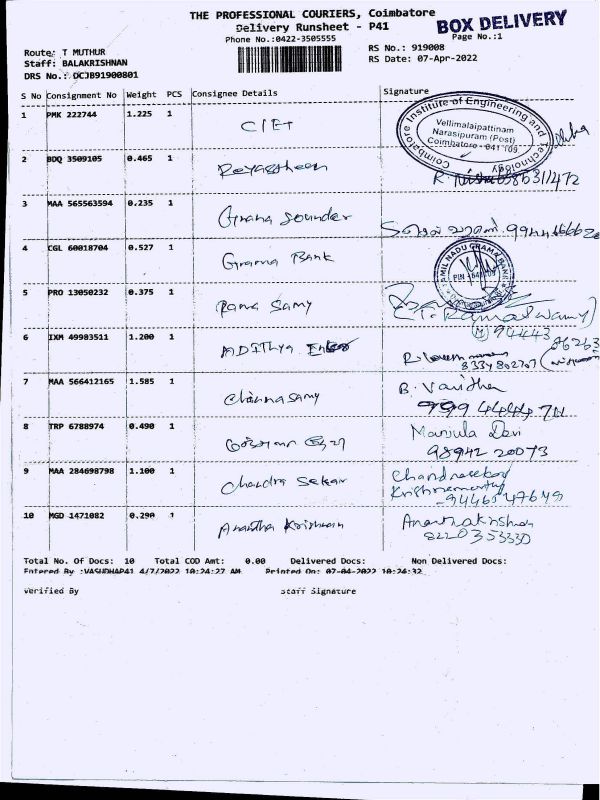 THE PROFESSIONAL COURIERS, Coimbatore
Delivery Runsheet - P41
BOX DELIVERY
Phone No.:0422-3505555
Page No.:1
Route: T MUTHUR
RS No.: 919008
Staff: BALAKRISHNAN
RS Date: 07-Apr-2022
DRS No.: DCJB91900801
S No Consignment No Weight PCS Consignee Details Signature
1 PMK 222744 1.225 1 CIET
Coimbatore Institute of Engineering and Technology
Vellimalaipattinam
Narasipuram (Post)
Coimbatore - 641 109
2 BDQ 3509105 0.465 1
3 MAA 565563594 0.235 1 Gnana Sounder
4 CGL 60018704 0.527 1 Grama Bank
TAMIL NADU GRAMA BANK
5 PRO 13050232 0.375 1 Rama Samy
(T. Ramaswamy)
6 IXM 49983511 1.200 1 ADITHYA
7 MAA 566412165 1.585 1 Chinnasamy
B. Vanitha
8 TRP 6788974 0.490 1
Manjula Devi
98942 20073
9 MAA 284698798 1.100 1 Chandra Sekar
Chandrasekar
Krishnamurthy
10 MGD 1471082 0.290 1 Anantha Krishnan
Ananthakrishnan
8220353330
Total No. Of Docs: 10 Total COD Amt: 0.00 Delivered Docs: Non Delivered Docs:
Entered By :VASUDHAP41 4/7/2022 10:24:27 AM Printed On: 07-04-2022 10:24:32
Verified By Staff Signature